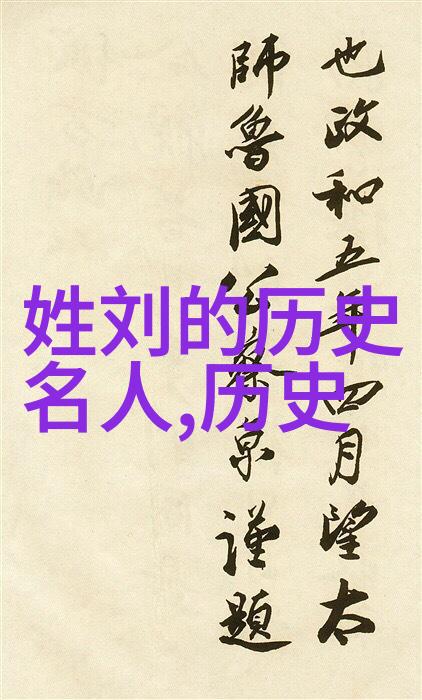 也政和五年四月望太
師魯國公蔡京謹題
姓刘的历史
名人,历史